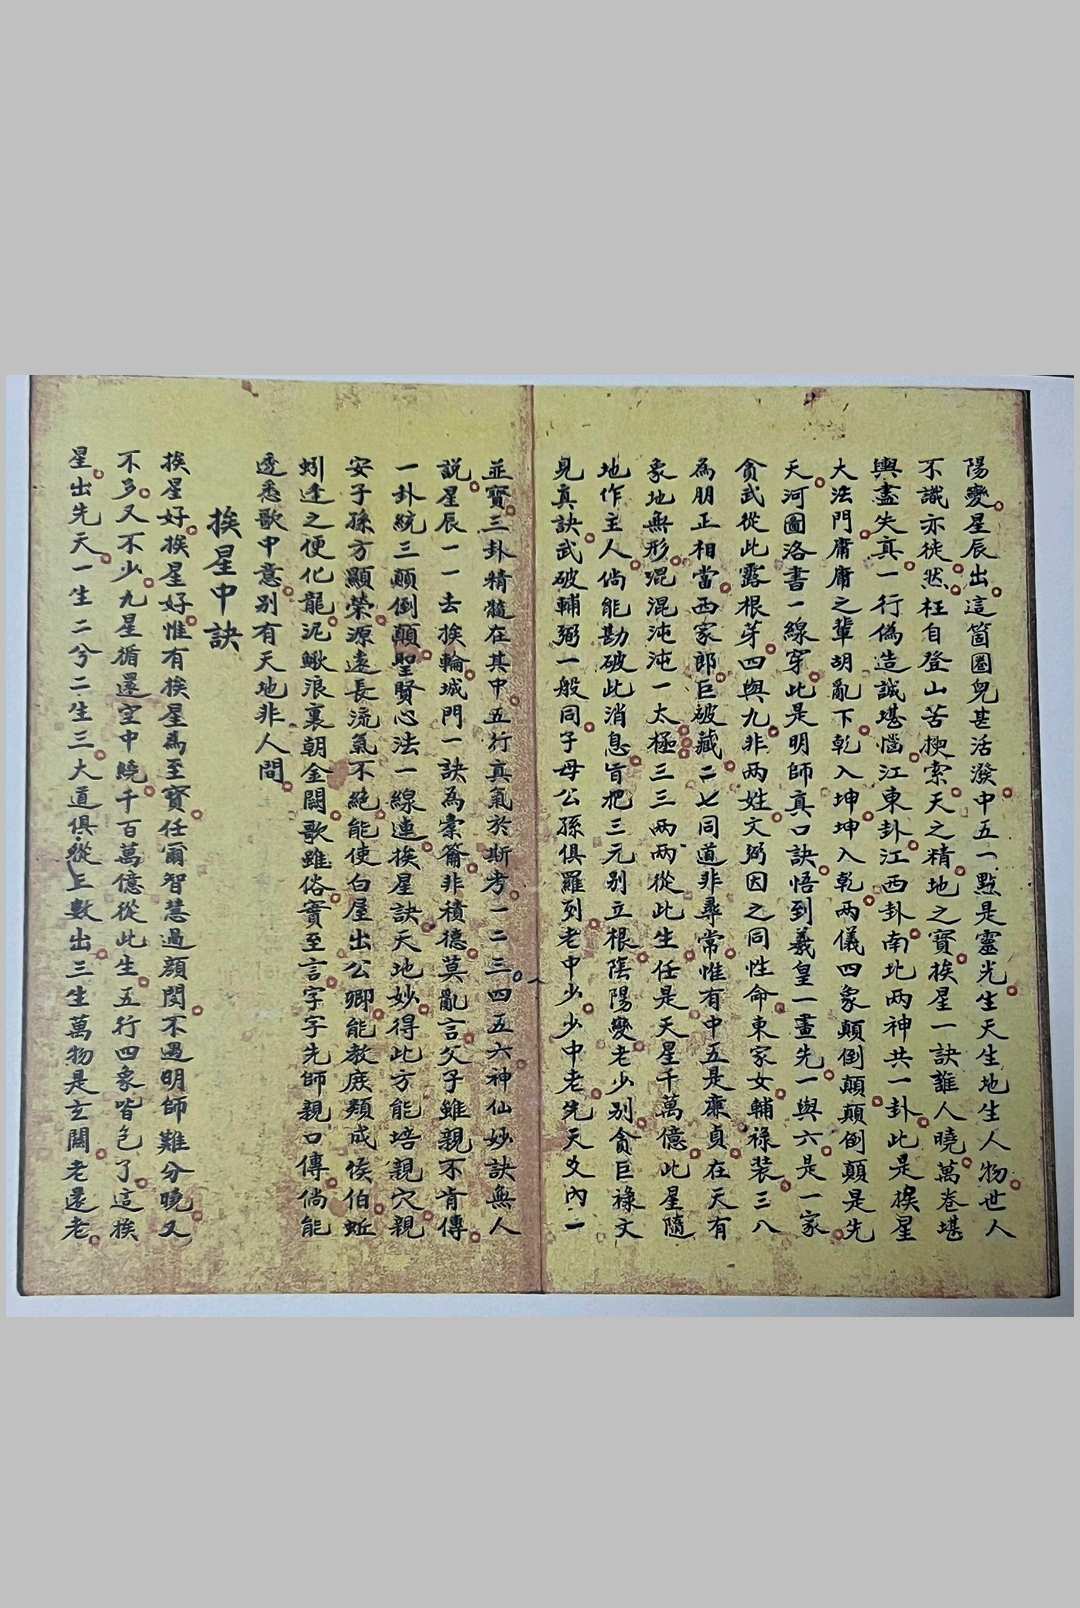 陽變星辰出這箇圈兒甚活潑中五一點是靈光生天生地生人物世人
不識亦徒然枉自登山苦梗索天之精地之寶挨星一訣誰人曉萬卷堪
輿盡失真一行偽造誠堪惱江東卦江西卦南北兩神共一卦此是挨星
大法門庸庸之輩胡亂下乾入坤坤入乾兩儀四象顛倒顛顛倒顛是先
天河圖洛書一線穿此是明師真口訣悟到羲皇一畫先一與六是一家
貪武從此露根芽四與九非兩姓文弼因之同性命東家女輔祿裝三八
為朋正相當西家郎巨破藏二七同道非尋常惟有中五是廉貞在天有
象地無形混混沌沌一太極三三兩兩從此生任是天星千萬億此星隨
地作主人倘能勘破此消息肯把三元別立根陰陽變老少別貪巨祿文
見真訣武破輔弼一般同子母公孫俱羅列老中少少中老先天爻內二
並寶三卦精髓在其中五行真氣於斯考一二三四五六神仙妙訣無人
說星辰一一去挨輪城門一訣為橐籥非積德莫亂言父子雖親不肯傳
一卦統三顛倒顛聖賢心法一線連挨星訣天地妙得此方能培親穴親
安子孫方顯榮源遠長流氣不絕能使白屋出公卿能教庶類成侯伯蚯
蚓逢之便化龍泥鰍浪裏朝金闕歌雖俗實至言字字先師親口傳倘能
透悉歌中意別有天地非人間
挨星中訣
挨星好挨星好惟有挨星為至寶任爾智慧過顏閔不遇明師難分曉又
不多又不少九星循還空中繞千百萬億從此生五行四象皆包了這挨
星出先天一生二兮二生三大道俱從上數出三生萬物是玄關老還老